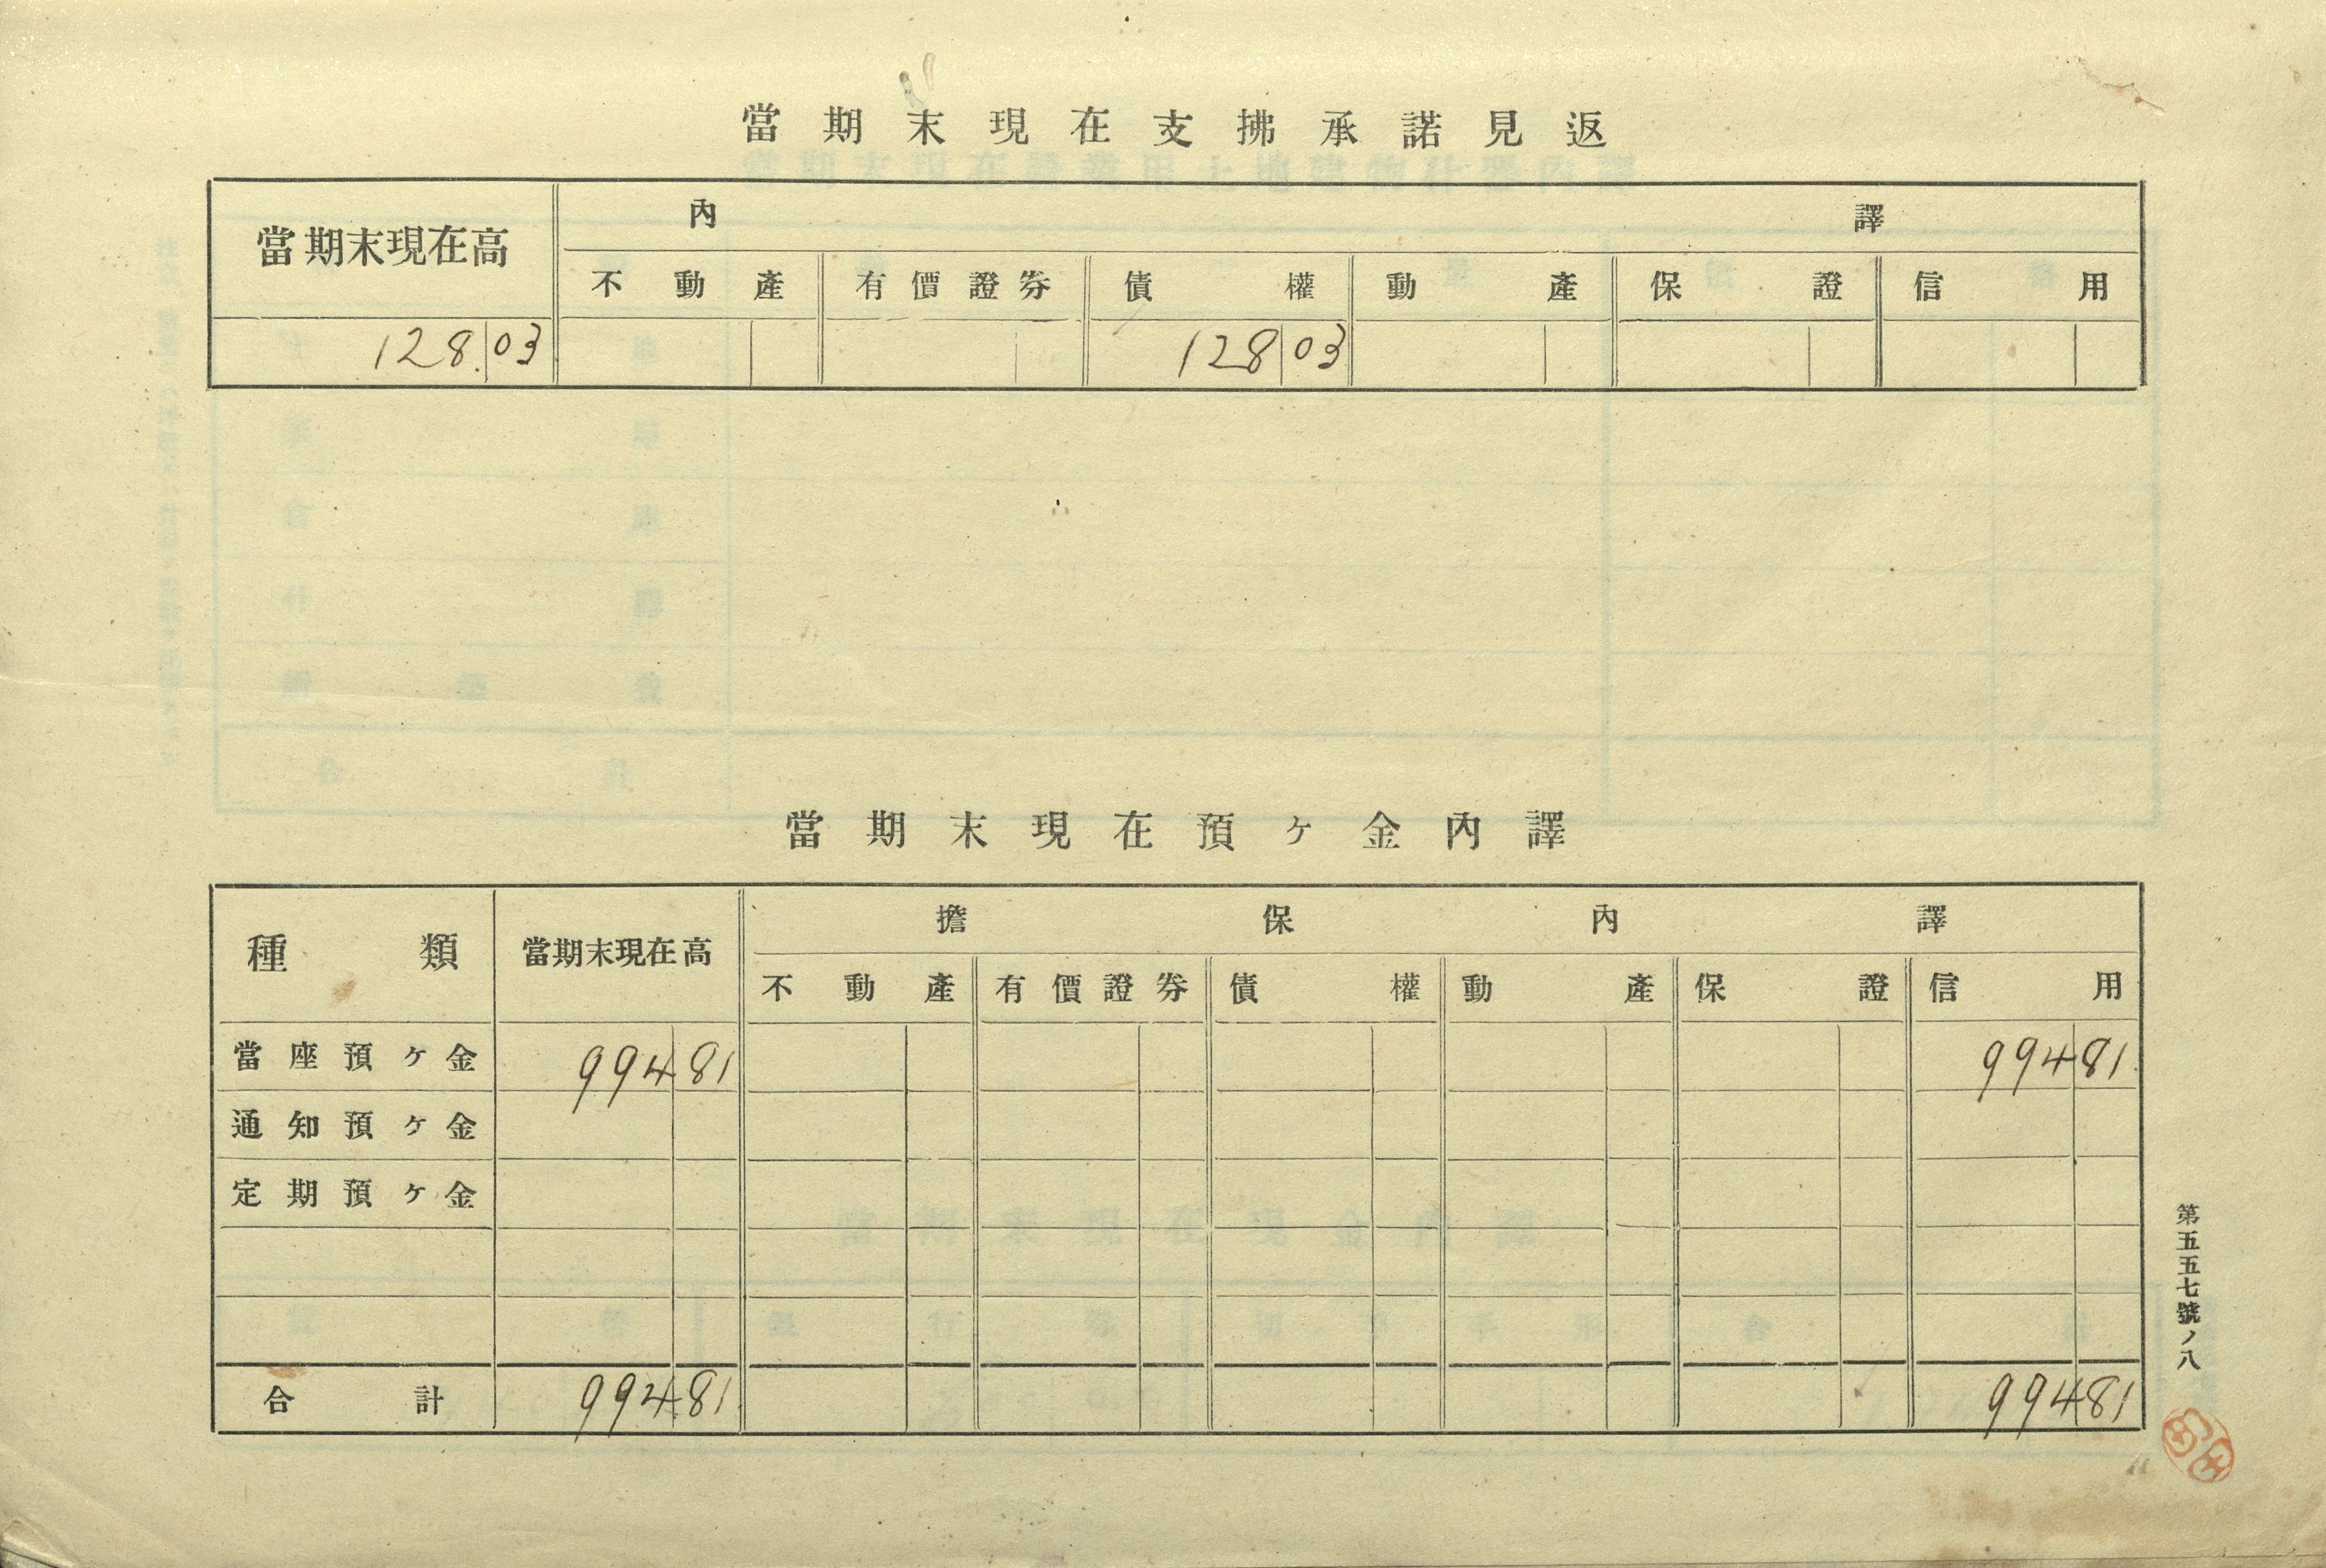 當期末現在支拂承諾見返
當期末現在高 內譯
不動產 有價證券 債權 動產 保證 信用
128.03 128 03
當期末現在預ヶ金內譯
種類 當期末現在高 擔保內譯
不動產 有價證券 債權 動產 保證 信用
當座預ヶ金 994 81 994 81
通知預ヶ金
定期預ヶ金
合計 994 81 994 81
第五五七號ノ八